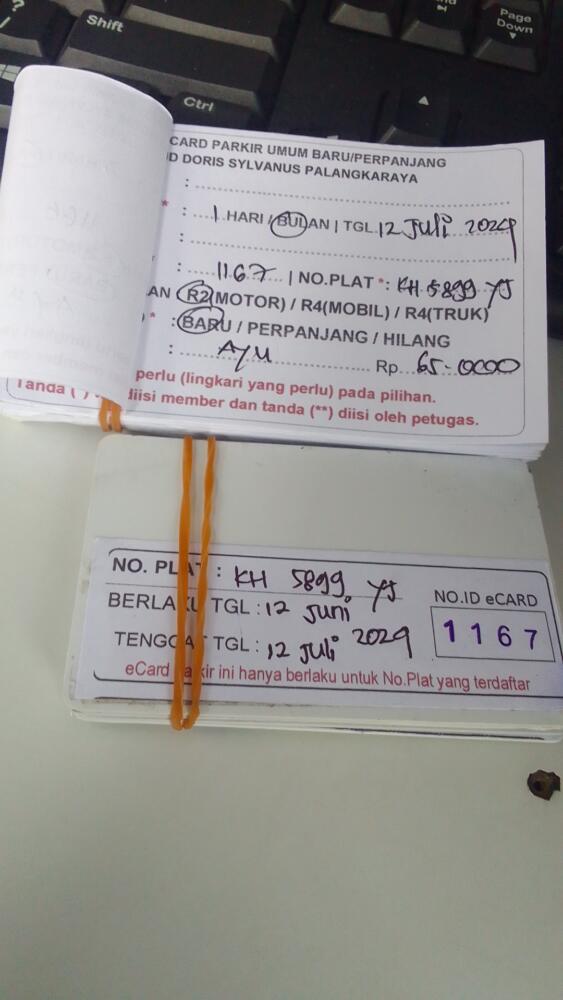 Shift
Page
Down
Ctrl
CARD PARKIR UMUM BARU/PERPANJANG
D DORIS SYLVANUS PALANGKARAYA
:
* : 1 HARI / BULAN | TGL 12 Juli 2024
:
: 1167 | NO.PLAT *: KH 5899 YJ
AN R2(MOTOR) / R4(MOBIL) / R4(TRUK)
* : BARU / PERPANJANG / HILANG
: AYU Rp 65.0000
perlu (lingkari yang perlu) pada pilihan.
Tanda ( ) diisi member dan tanda (**) diisi oleh petugas.
NO. PLAT : KH 5899 YJ
BERLAKU TGL : 12 Juni
TENGGAT TGL : 12 Juli 2024
NO.ID eCARD
1167
eCard parkir ini hanya berlaku untuk No.Plat yang terdaftar